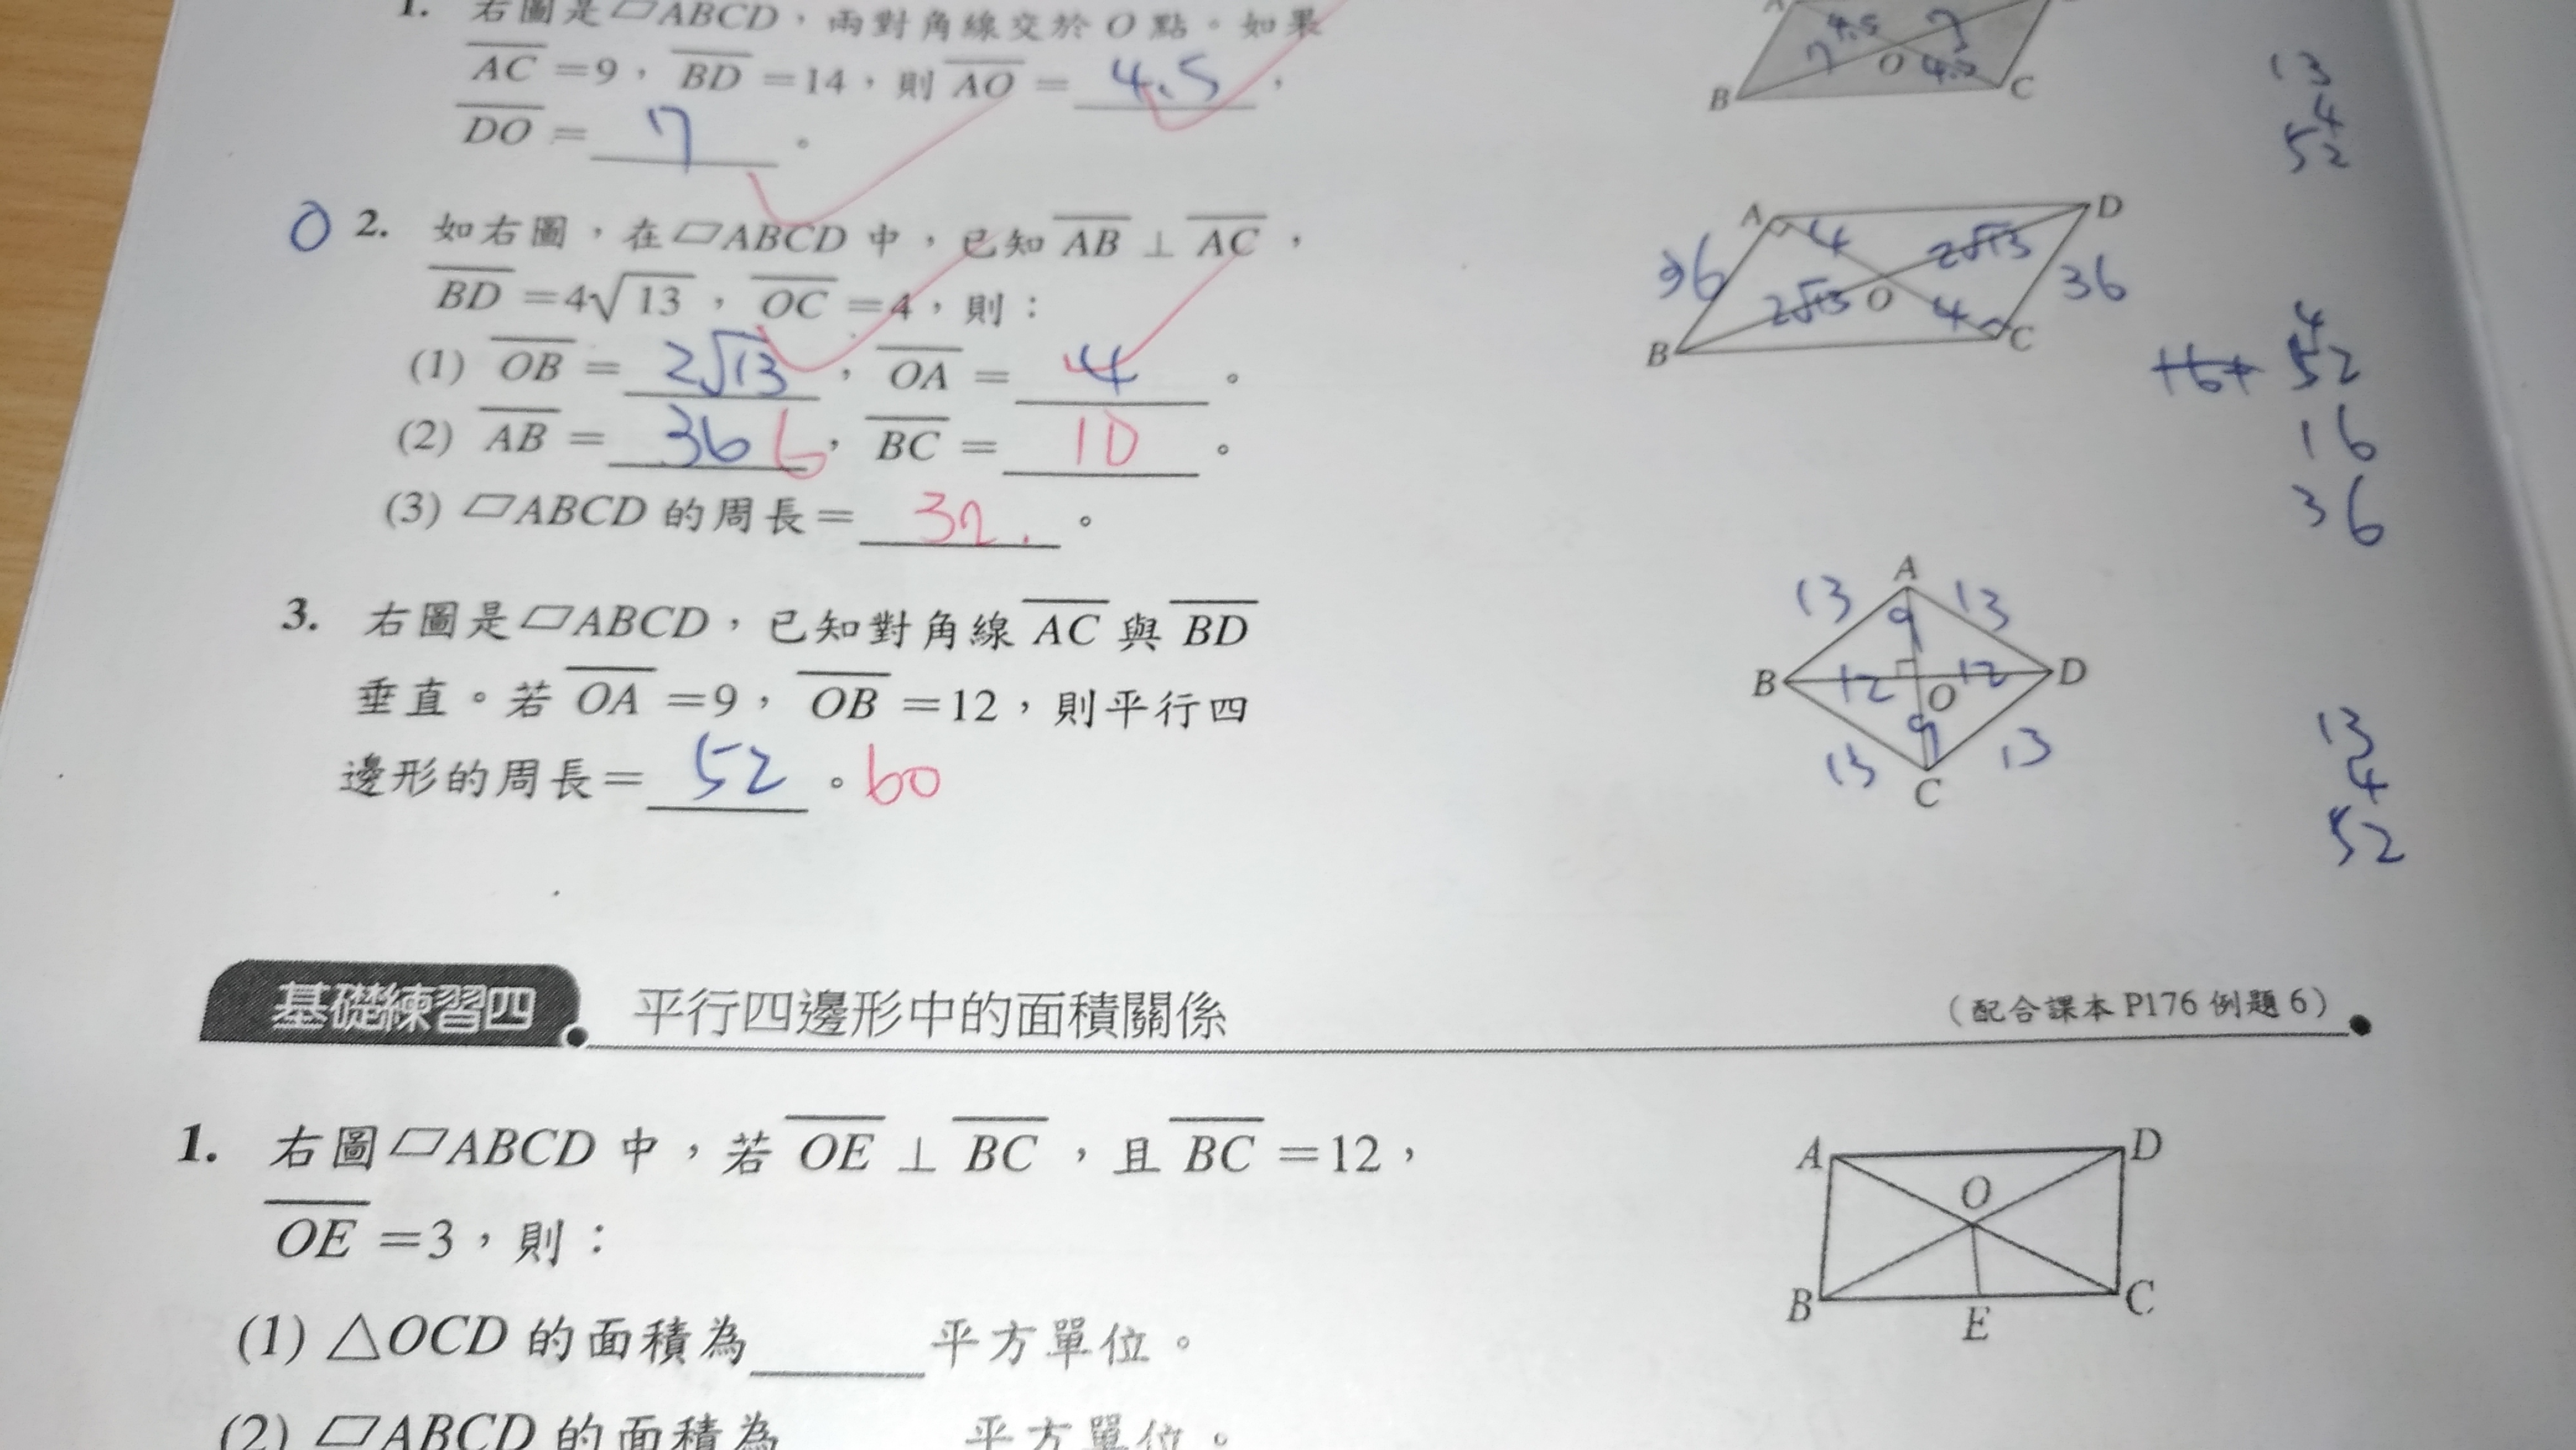 1. 右圖是▱ABCD，兩對角線交於 O 點。如果
AC=9，BD=14，則 AO= 4.5，
DO= 7。
A
4.5 7
7 O 4.5
B C
13
4
52
O 2. 如右圖，在▱ABCD 中，已知 AB⊥AC，
BD=4√13，OC=4，則：
(1) OB= 2√13，OA= 4。
(2) AB= 36 6，BC= 10。
(3) ▱ABCD 的周長= 32.。
A D
4 2√13
36 36
2√13 O 4
B C
4
52
16
36
3. 右圖是▱ABCD，已知對角線 AC 與 BD
垂直。若 OA=9，OB=12，則平行四
邊形的周長= 52。60
A
13 13
9
B 12 12 D
O
9
13 13
C
13
4
52
基礎練習四 平行四邊形中的面積關係 （配合課本 P176 例題 6）
1. 右圖▱ABCD 中，若 OE⊥BC，且 BC=12，
OE=3，則：
(1) △OCD 的面積為____平方單位。
(2) ▱ABCD 的面積為____平方單位。
A D
O
B E C